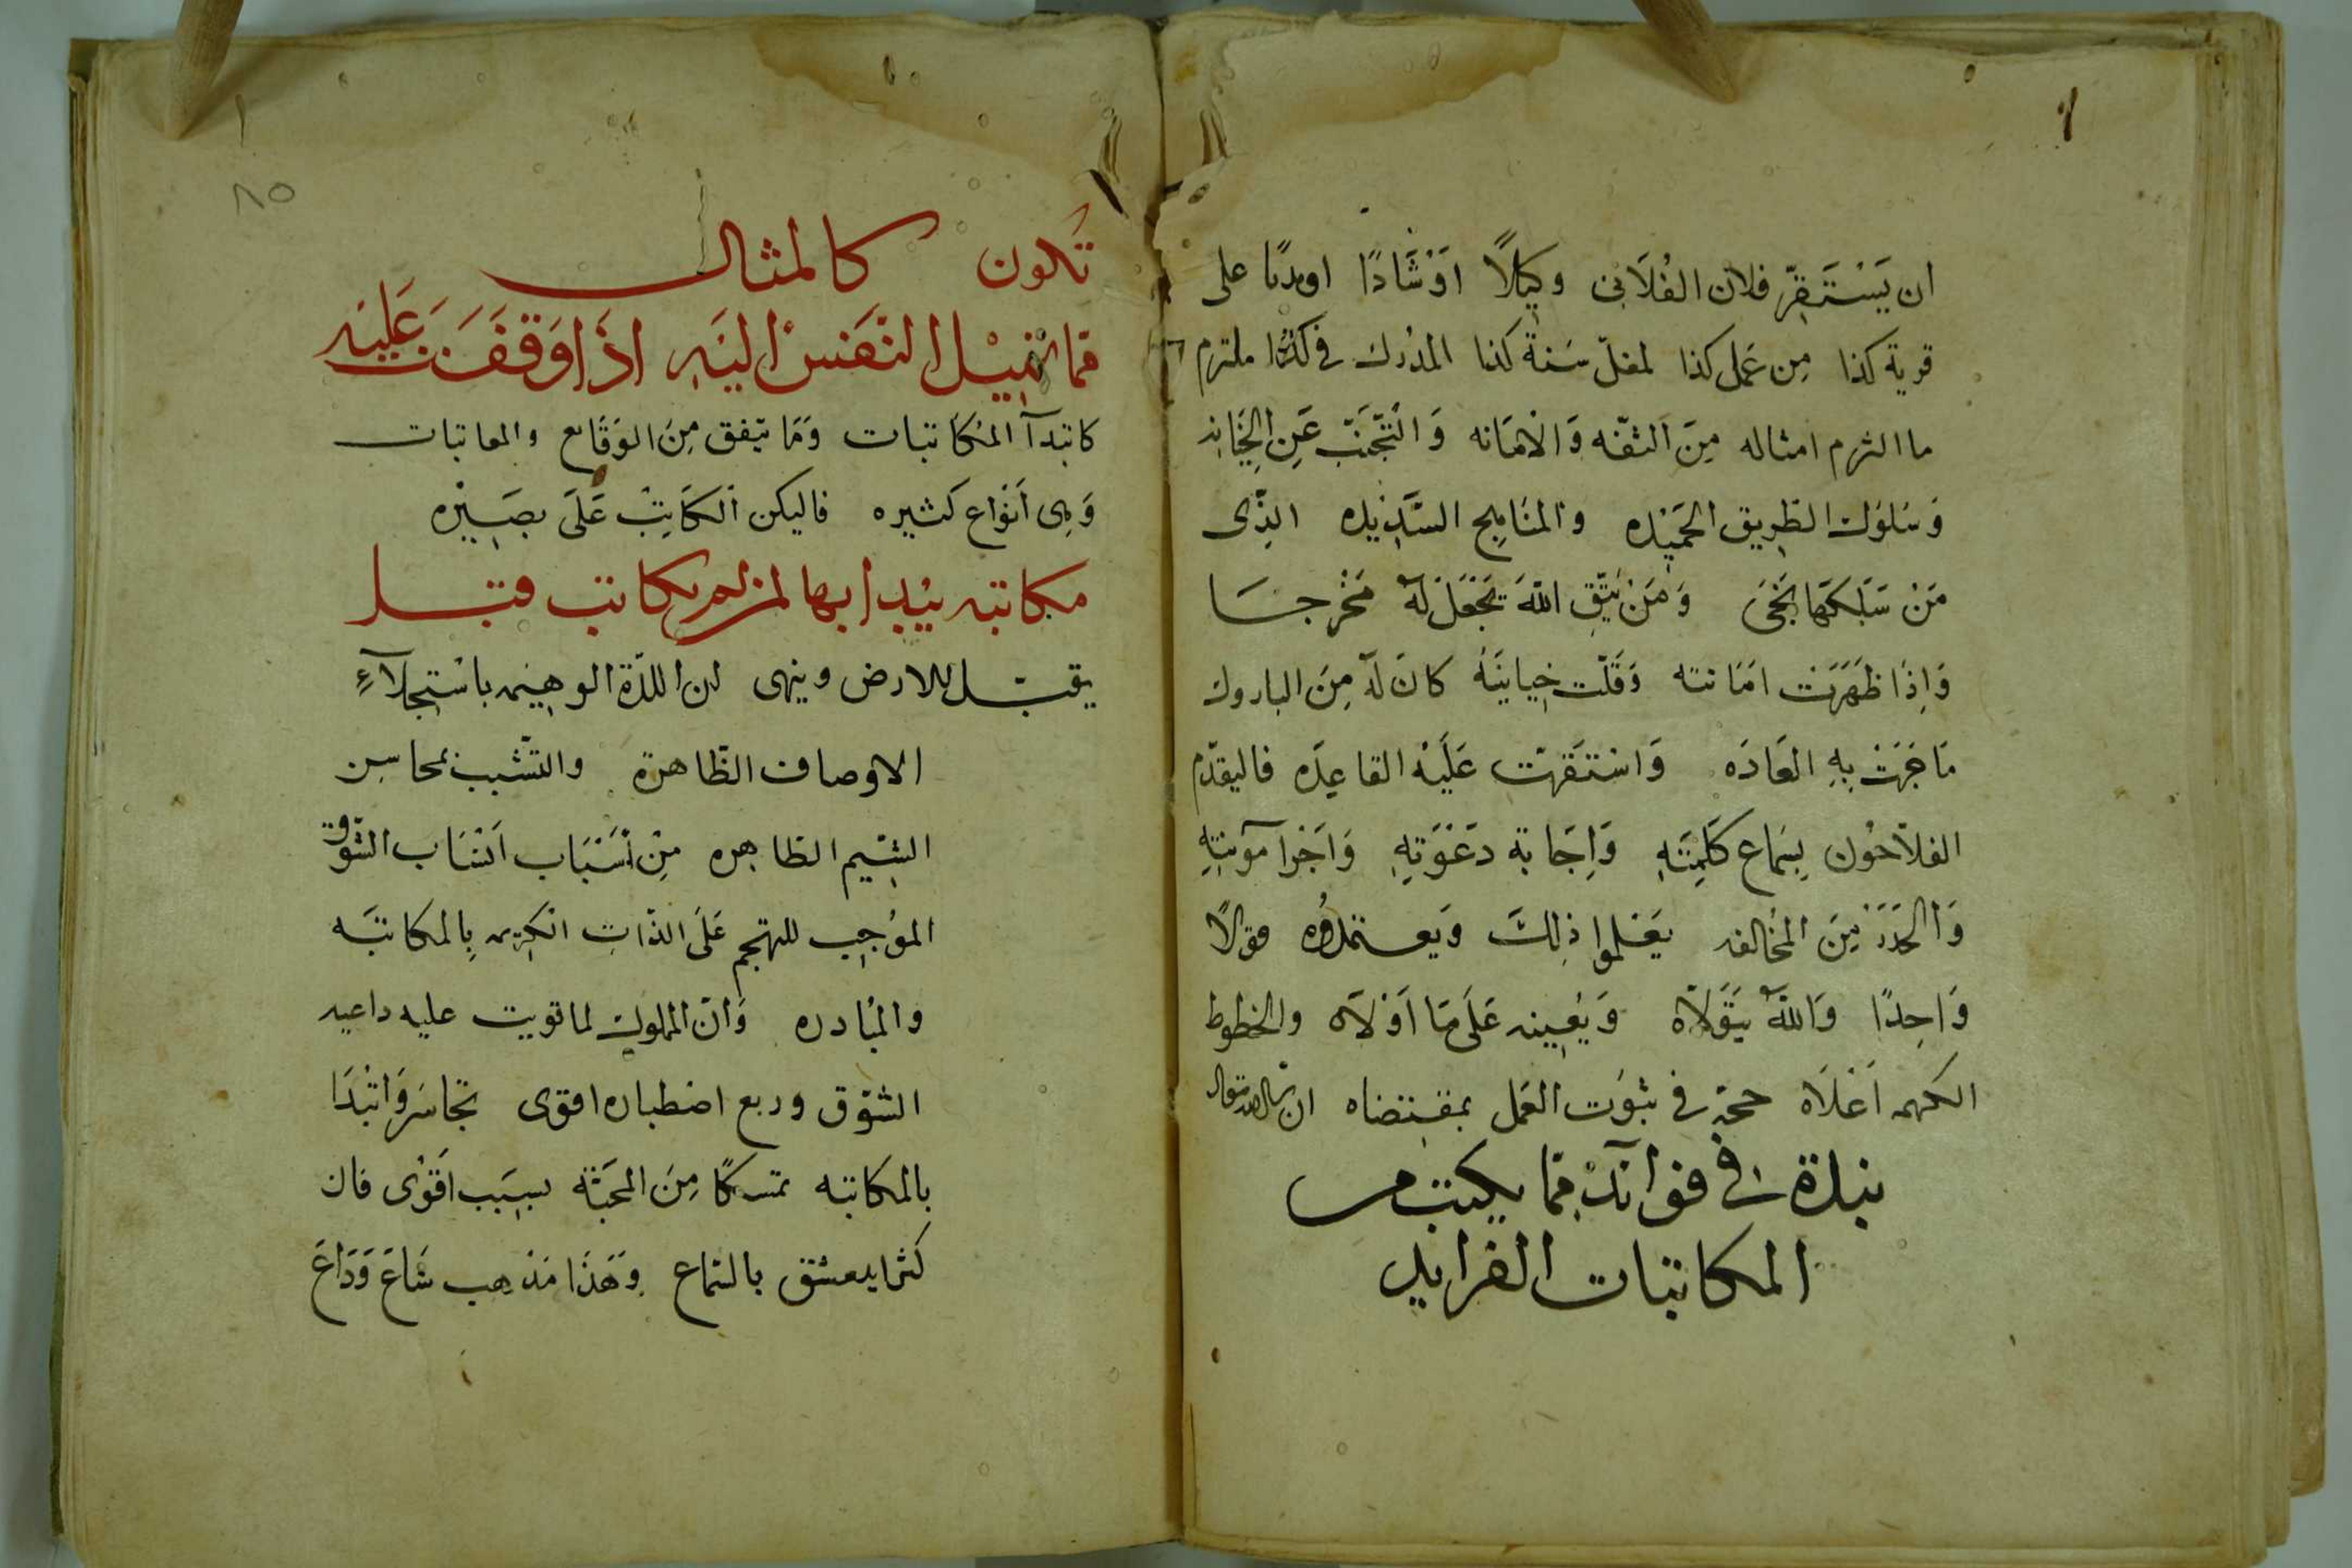 ان يَسْتَقِرّ فلان الفُلَانى وكِيلًا اوْشَادًا او على
قرية كذا مِن عَمل كذا لمغلّ سَنة كذا المدْرك فى ملتزم
ما التزم امثاله مِنَ الثقه وَالْامَانه وَالتّجَنّب عَنِ الخِيَانه
وَسُلوْك الطّرِيق الحَمِيْده والمنَاهِج السَّدِيْده الذِى
مَنْ سَلَكهَا نجَى وَمَنْ يَتّقِ اللهَ يَجْعَل لَهُ مَخْرجَا
وَاِذَا ظَهَرَت امَانته وَقَلّت خِيانتهُ كانَ لَهُ مِنَ الباروك
مَا جَرَتْ بِهِ العَادَه وَاسْتَقرّت عَلَيْهِ القاعِدَه فاليقدّم
الفلّاحُون بِسَماع كَلِمَتِهِ وَاِجَابة دَعْوَتِهِ وَاَجْرا
وَالحَذَر مِنَ المُخَالفه يَعْلموا ذلِكَ وَيعتمدُوه قولًا
وَاحِدًا وَاللهُ يَتَوَلّاهُ وَيُعِينه عَلَى مَا اَوْلَاه والخطوط
الكريمه اَعْلَاه حجّة فى ثبوت العَمل بمقتضاه ان
نبذة فى فوآئد ممّا يكتب من
المكاتبات الفرايد
١
٨٥
تكون كالمثال
ممّا تميْل النّفسْ اليَهِ اذَا وَقفَت عَليَه
كابتدآ المُكاتبات وَمَا يتّفق مِنَ الوَقَايع والمعاتبات
وَهِى اَنْوَاع كثيره فاليكن الكَاتِبْ عَلَى بصَيْره
مكاتبه يبْدا بها لمن لم يكاتب قبل
يقبّل للارض وينهى لمن اللذّة الوهيّمه باسْتجلآءِ
الاوصاف الظّاهرة والتّشبب بمحاسِن
الشِيَم الطّاهره مِنْ اَسْبَاب اَنْسَاب الشّوق
الموْجِب للتهجم عَلَى الذّات الكريمه بِالمكاتبَه
والمُبادره وَانّ المملوك لما قويت عليه داعيه
الشوّق وربع اصْطباره اقوى تجاسَر وَابْتدَا
بالمكاتبه تمسكًا مِنَ المحَبّة بسَبَب اَقْوى فان
كثرا يعشق بالسّماع وَهَذا مَذهب شاعَ وَذَاعَ